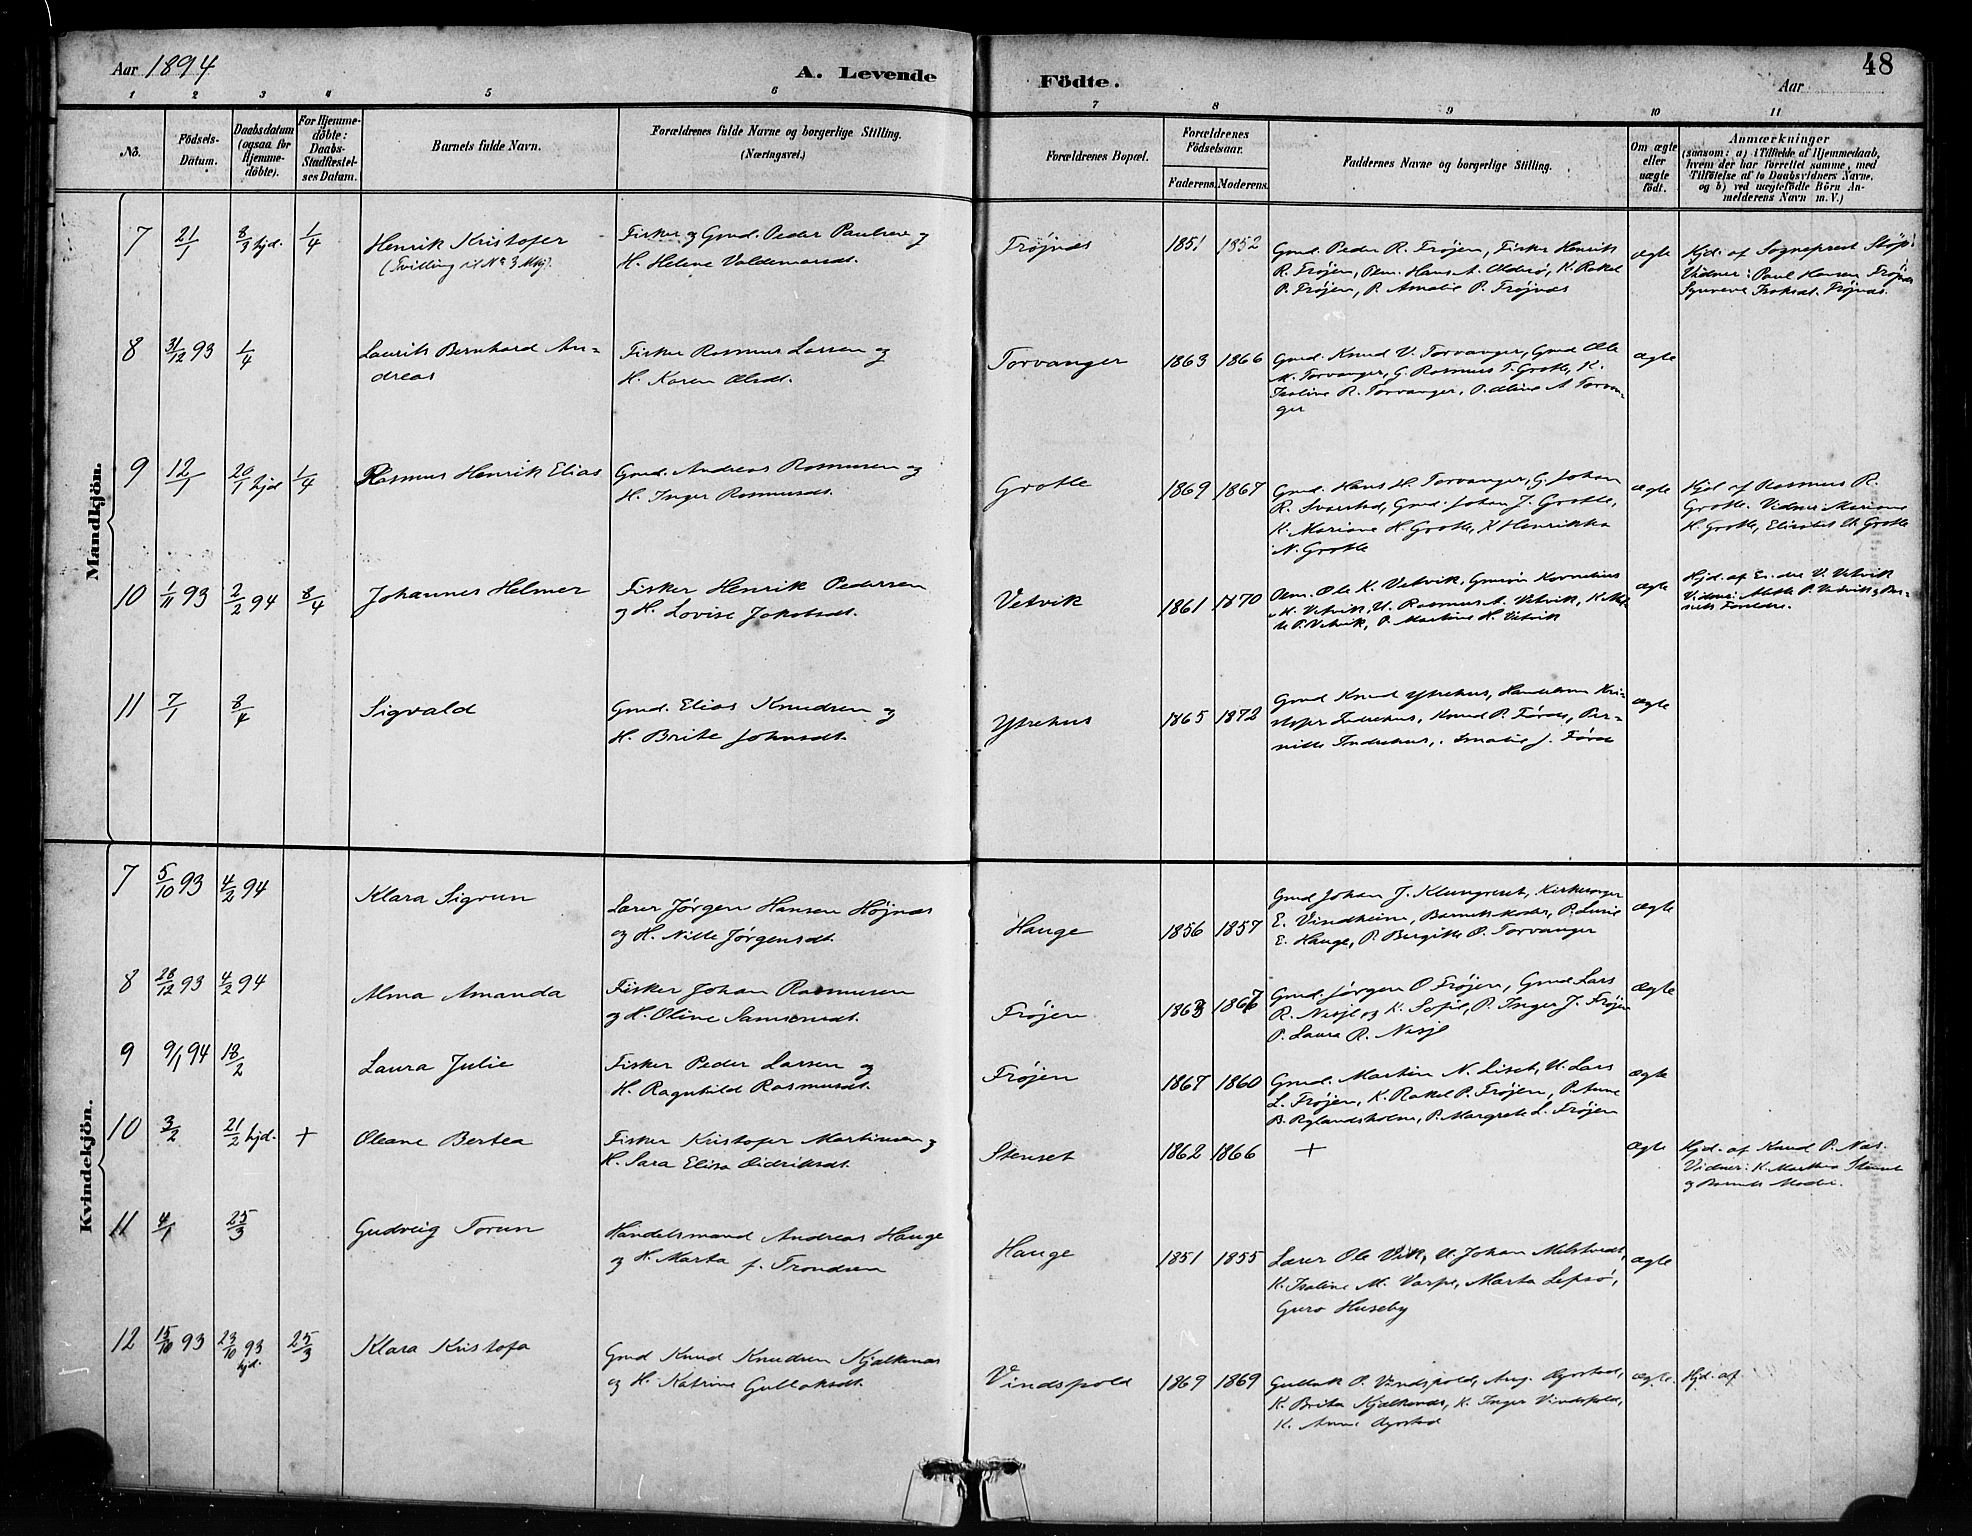 Aar 1894
A. Levende
Födte.
Aar
48
1 2 3 4 5 6 7 8 9 10 11
No.
Födsels-
Datum.
Daabsdatum
(ogsaa for
Hjemme-
döbte).
For Hjemme-
döbte:
Daabs-
Stadfæstel-
ses Datum.
Barnets fulde Navn.
Forældrenes fulde Navne og borgerlige Stilling.
(Næringsvei.)
Forældrenes Bopæl.
Forældrenes
Födselsaar.
Faderens. Moderens.
Faddernes Navne og borgerlige Stilling.
Om ægte
eller
uægte
födt.
Anmærkninger
(saasom: a) i Tilfælde af Hjemmedaab,
hvem der har forrettet samme, med
Tilföielse af to Daabsvidners Navne,
og b) ved uægtefödte Börn An-
melderens Navn m. V.)
Mandkjön.
7 21/1 8/3 hjd. 1/4
Henrik Kristofer
(Tvilling til No 3 Mkj).
Fisker og Gmd. Peder Paulsen og
H. Helene Valdemarsdt.
Frøjnæs
1851 1852
Gmd. Peder R. Frøjen, Fisker Henrik
R. Frøjen, Pkm. Hans A. Oldersø, K. Rakel
P. Frøjen, P. Amalie P. Frøjnæs
ægte
Hjd. af Sogneprest Støp:
Vidner: Paul Hansen Frøjnæs
Frøjnæs.
8 31/12 93 1/4
Laurits Bernhard An=
dreas
Fisker Rasmus Larsen og
H. Karen Olsdt.
Torvanger
1863 1866
Gmd. Knud V. Torvanger, Gmd Ole
M. Torvanger, G. Rasmus T. Grotle, K.
Isaline R. Torvanger, P. Oline A Torvan-
ger
ægte
9 12/1 20/1 hjd 1/4
Rasmus Henrik Elias
Gmd. Andreas Rasmusen og
H. Inger Rasmusdt.
Grotle
1869 1867
Gmd. Hans H. Torvanger, G. Johan
R. Svarstad, Gmd. Johan J. Grotle,
K. Mariane H. Grotle, K Henrikka
N. Grotle
ægte
Hjd. af Rasmus R.
Grotle. Vidner: Mariane
H. Grotle, Elisabet U. Grotle
10 1/11 93 2/2 94 8/4
Johannes Helmer
Fisker Henrik Pedersen
og H. Lovise Jakobsdt.
Vetvik
1861 1870
Ole K. Vetvik, Kornelius
K. Vetvik, U. Rasmus A. Vetvik, K. Met-
te P. Vetvik, P. Martine H. Vetvik
ægte
Hjd. af V. Vetvik
Vidner: Mette P. Vetvik og Bar-
nets Forældre.
11 7/1 8/4
Sigvald
Gmd. Elias Knudsen og
H. Brite Johnsdt.
Ytrehus
1865 1872
Gmd Knud Ytrehus, Handelsm Kri-
stofer Indrehus, Knud P. Førde, Per-
nille Indrehus, Amalie J. Førde
ægte
Kvindekjön.
7 5/10 93 4/2 94
Klara Sigrun
Lærer Jørgen Hansen Højnæs
og H. Nille Jørgensdt.
Hauge
1856 1857
Gmd Johan J. Klungreset, Kirkesanger
E. Vindheim, Barnets Moder, P. Lurie
E. Hauge, P. Bergitte O. Torvanger
ægte
8 28/12 93 4/2 94
Alma Amanda
Fisker Johan Rasmusen
og H. Oline Samsonsdt.
Frøjen
1863 1867
Gmd. Jørgen O Frøjen, Gmd Lars
R. Nisje og K. Sofie, P. Inger J. Frøjen
P. Laura R. Nisje
ægte
9 9/1 94 18/2
Laura Julie
Fisker Peder Larsen og
H. Ragnhild Rasmusdt.
Frøjen
1867 1860
Gmd. Martin N. Liset, U. Lars
L. Frøjen, K. Rakel P. Frøjen, P. Anne
B. Rylandsholm, P. Margrete L. Frøjen
ægte
10 3/2 21/2 hjd. +
Oleane Bertea
Fisker Kristofer Martinsen og
H. Sara Elisa Didriksdt.
Stenset
1862 1866
+
ægte
Hjd. af Knud P. Næs.
Vidner: K. Marthea Stenset
og Barnets Moder.
11 4/1 25/3
Gudveig Torun
Handelsmand Andreas Hauge
og H. Marta f. Trondsen
Hauge
1851 1855
Lærer Ole Vik, U. Johan Melstvedt,
K. Isaline M. Varpe, Marta Lepsø,
Guro Huseby
ægte
12 15/10 93 23/10 93 hjd. 25/3
Klara Kristofa
Gmd Knud Knudsen Kjelkenæs
og H. Katrine Gullaksdt.
Vindspold
1869 1869
Gullak P. Vindspold, Aug. Ograstad,
K. Brita Kjelkenæs, K. Inger Vindspold,
K. Anne
ægte.
Hjd. af